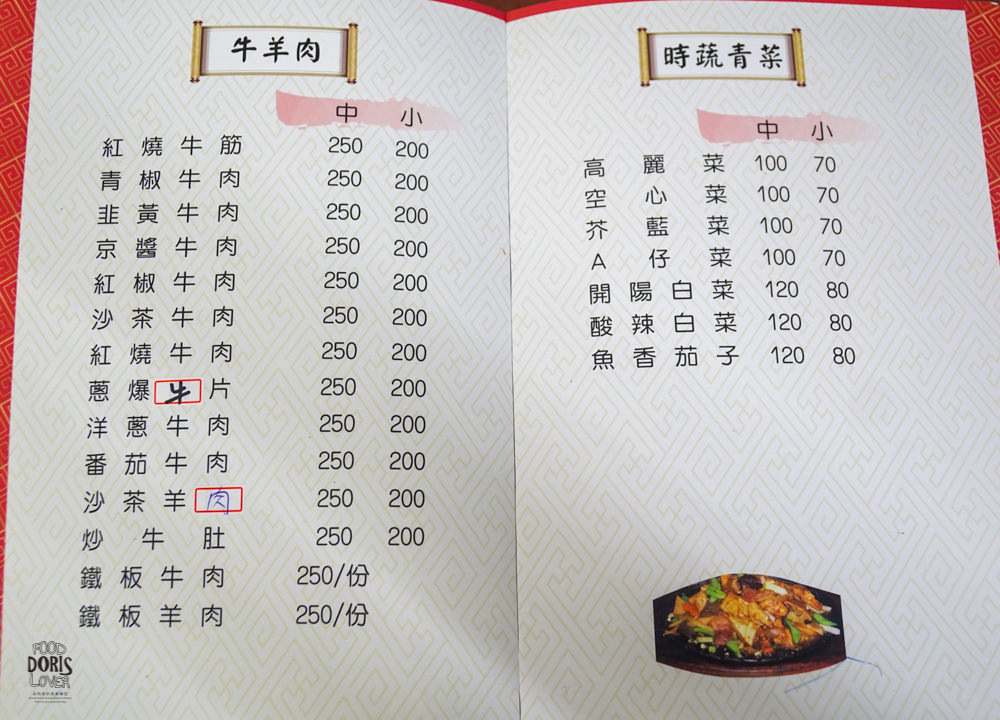 牛羊肉
中 小
紅燒牛筋 250 200
青椒牛肉 250 200
韭黃牛肉 250 200
京醬牛肉 250 200
紅椒牛肉 250 200
沙茶牛肉 250 200
紅燒牛肉 250 200
蔥爆牛片 250 200
洋蔥牛肉 250 200
番茄牛肉 250 200
沙茶羊肉 250 200
炒牛肚 250 200
鐵板牛肉 250/份
鐵板羊肉 250/份
FOOD
DORIS
LOVER
時蔬青菜
中 小
高麗菜 100 70
空心菜 100 70
芥藍菜 100 70
A仔菜 100 70
開陽白菜 120 80
酸辣白菜 120 80
魚香茄子 120 80